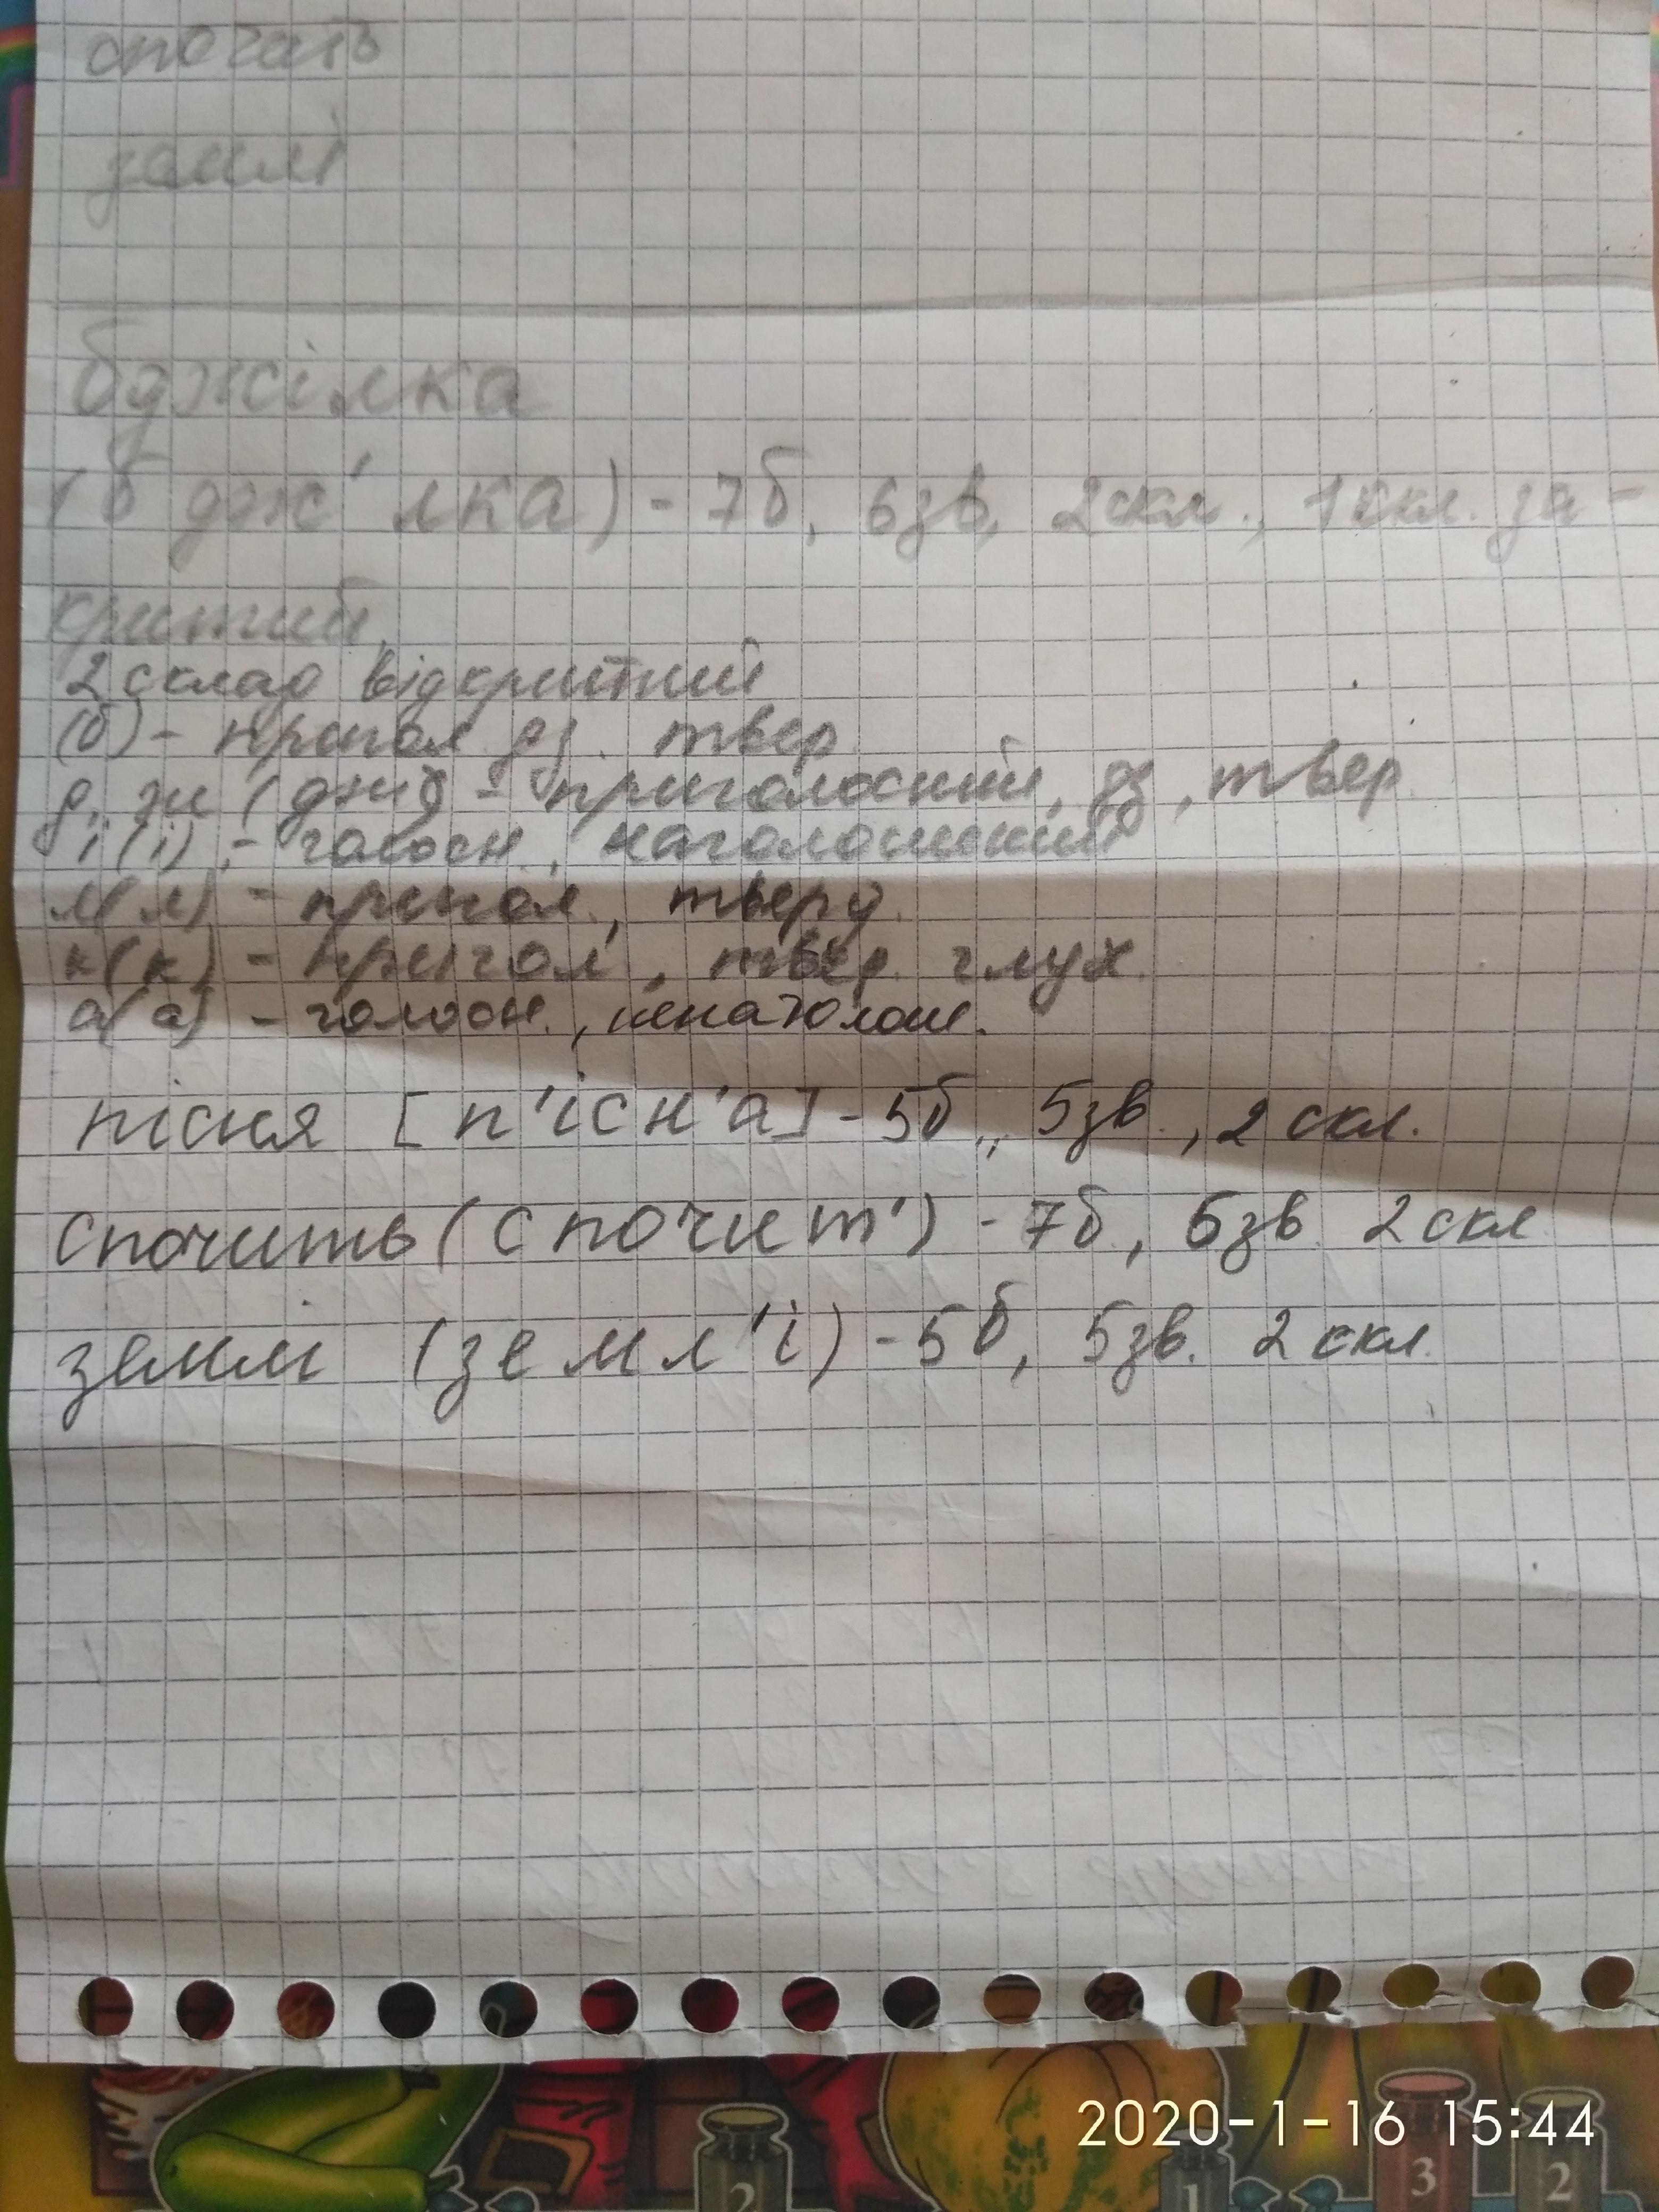 спочить
землі
бджілка
(б дж' лка) - 7б, 6зв, 2скл., 1скл. за-
критий,
2 склад відкритий
(б) - пригол дз. твер
д, ж (дж) - приголосний, дз, твер.
і (і), - голосн, наголошений
л(л) - пригол., тверд.
к(к) - пригол, твер. глух.
а(а) - голосн., ненаголош.
пісня [п'існ'а] - 5б., 5зв., 2 скл.
спочить (спочит') - 7б, 6зв 2скл
землі (земл'і) - 5б, 5зв. 2 скл.
2020-1-16 15:44
2
1
3
2